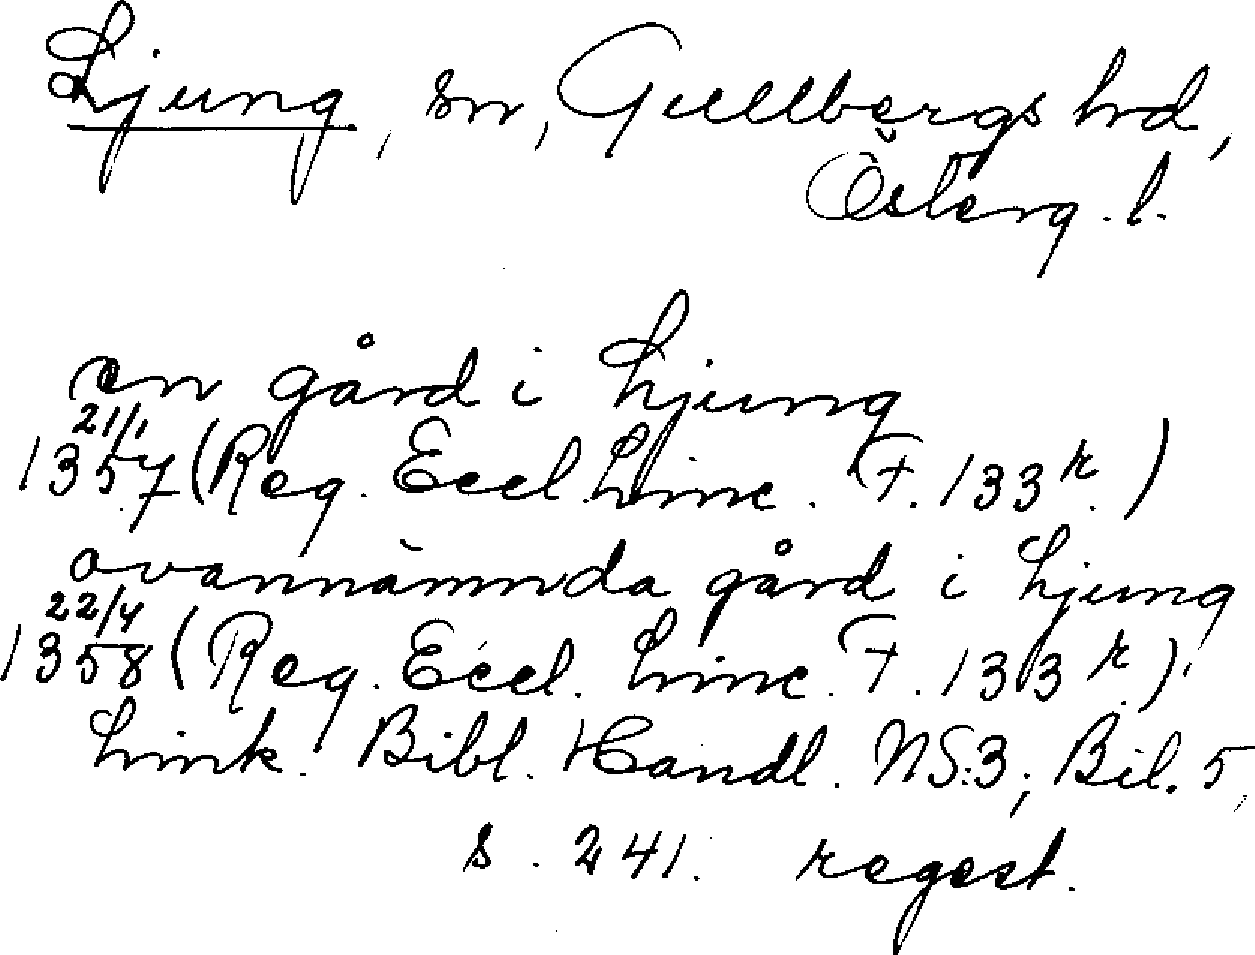 Ljung, sn, Gullbergs hd,
Österg. l.
en gård i Ljung
21/1
1357 (Reg. Eccl. Linc. F. 133 r.)
ovannämnda gård i Ljung
22/4
1358 (Reg. Eccl. Linc. F. 133 r.)
Link. Bibl. Handl. NS:3, Bil. 5,
s. 241. regest.